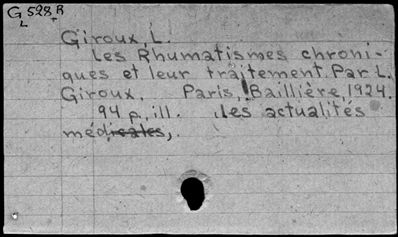 G 528 R
L
Giroux, L.
Les Rhumatismes chroni-
ques et leur traitement. Par L.
Giroux. Paris, Baillière, 1924.
94 p., ill. Les actualités
médicales,.